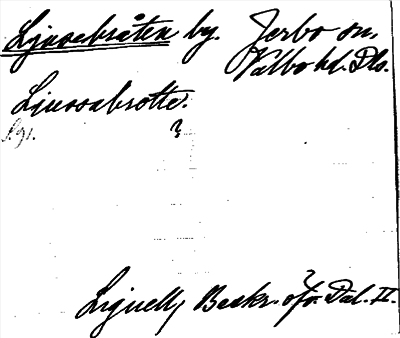 Ljusebråten by. Jerbo sn,
Valbo hd. Dls.
Ljussabrotte.
S. 91.
Lignell, Beskr. öfv. Dal. II.